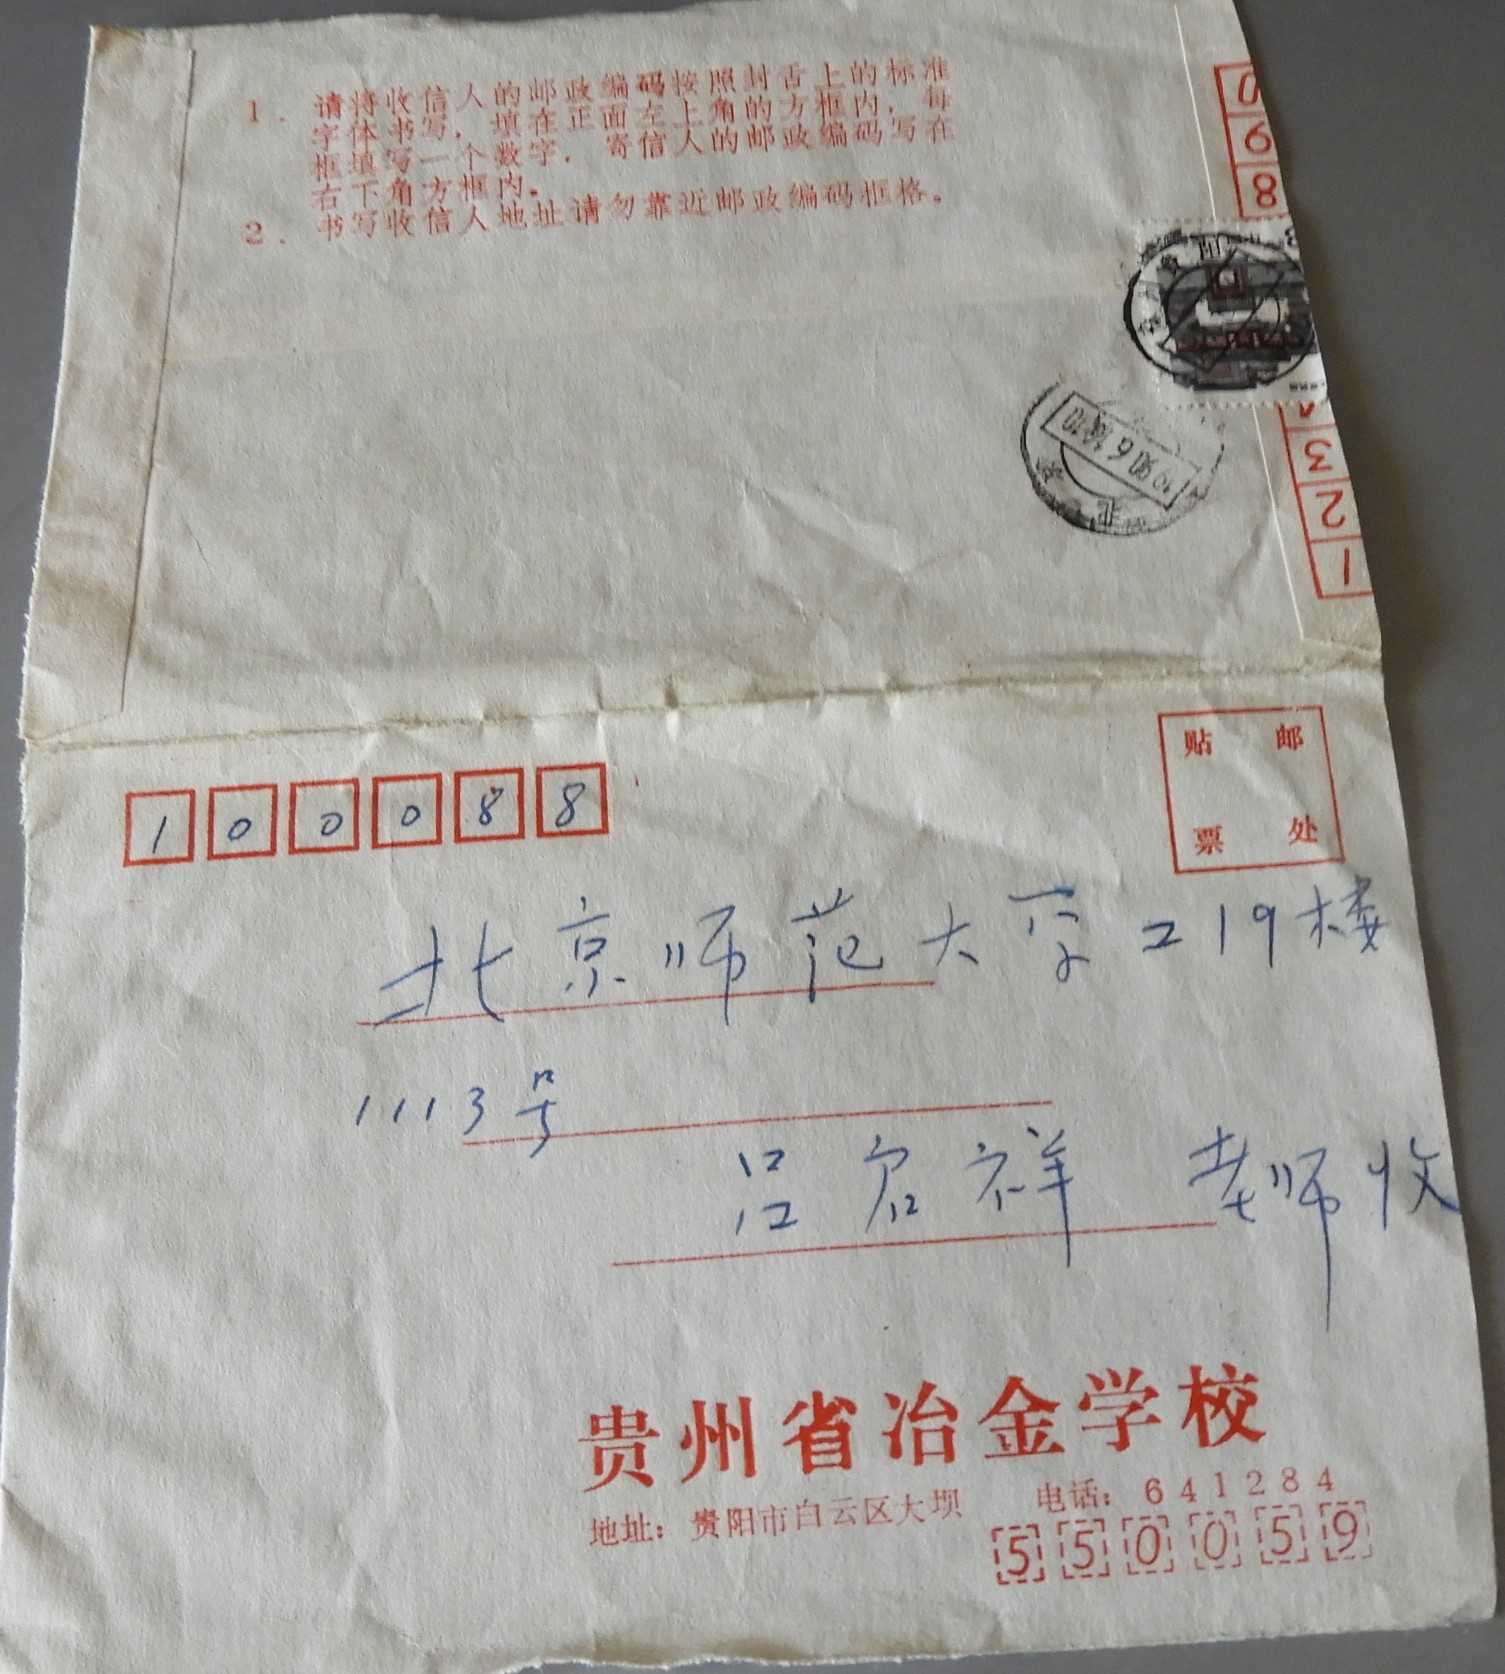 1. 请将收信人的邮政编码按照封舌上的标准
字体书写，填在正面左上角的方框内，每
框填写一个数字，寄信人的邮政编码写在
右下角方框内。
2. 书写收信人地址请勿靠近邮政编码框格。
0
9
8
3
2
1
北
1990.6.14.10
贴 邮
票 处
100088
北京师范大学工19楼
1113号
吕启祥 老师收
贵州省冶金学校
地址：贵阳市白云区大坝 电话：641284
550059